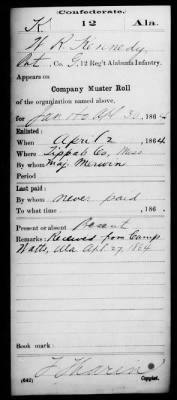 Confederate.
K 12 Ala.
W. R. Kennedy,
Pvt. Co. G, 12 Reg't Alabama Infantry.
Appears on
Company Muster Roll
of the organization named above,
for Jan 1 to Apr 30, 1864
Enlisted:
When April 2, 1864
Where Tippah Co, Miss
By whom Maj. Merwin
Period
Last paid:
By whom never paid,
To what time , 186 .
Present or absent Present
Remarks: Received from Camp
Watts, Ala Apr. 27, 1864
Book mark:
(642) Copyist.